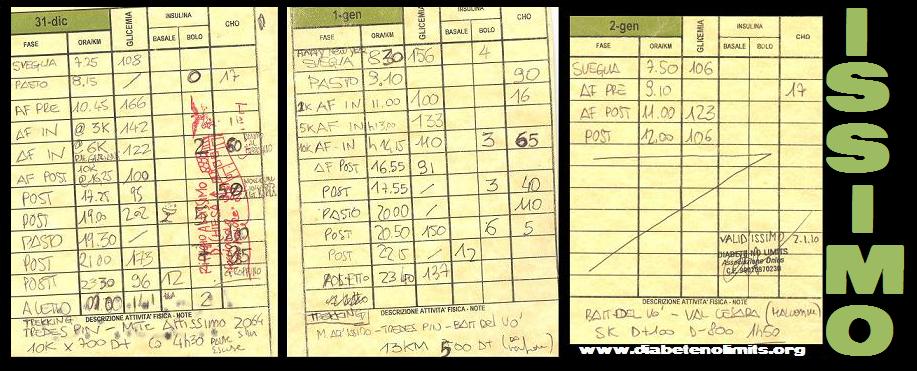 31-dic
FASE ORA/KM GLICEMIA INSULINA BASALE BOLO CHO
SVEGLIA 7.25 108
PASTO 8.15 / 0 17
AF PRE 10.45 166
AF IN @ 3K 142
AF IN @ 6K 122 2 60
AF POST 10K @16.25 100
POST 17.25 95
POST 19.00 202
PASTO 19.30 /
POST 21.00 175
POST 23.30 96 12
A LETTO 2
DESCRIZIONE ATTIVITA' FISICA - NOTE
TREKKING
TREDES PIN - Mte Altissimo 2064
10K x 700 D+ @ 4h30
1-gen
FASE ORA/KM GLICEMIA INSULINA BASALE BOLO CHO
HAPPY NEW YEAR
SVEGLIA 8.30 156 4
PASTO 9.10 90
AF IN 11.00 100 16
5K AF IN 133
10K AF IN 14,15 110 3 65
AF POST 16.55 91
POST 17.55 / 3 40
PASTO 20.00 / 110
POST 20.50 150 6 5
POST 22.15 / 12
A LETTO 23.40 137
DESCRIZIONE ATTIVITA' FISICA - NOTE
TREKKING
TREDES PIN - BAIT DEL VO'
13KM 500 D+
2-gen
FASE ORA/KM GLICEMIA INSULINA BASALE BOLO CHO
SVEGLIA 7.50 106
AF PRE 9.10 17
AF POST 11.00 123
POST 12.00 106
VALIDISSIMO 2.1.10
DIABETE NO LIMITS
Associazione Onlus
DESCRIZIONE ATTIVITA' FISICA - NOTE
BAIT DEL VO' - VAL CESARA
5K D+100 D-800 1h50
www.diabetenolimits.org
ISSIMO